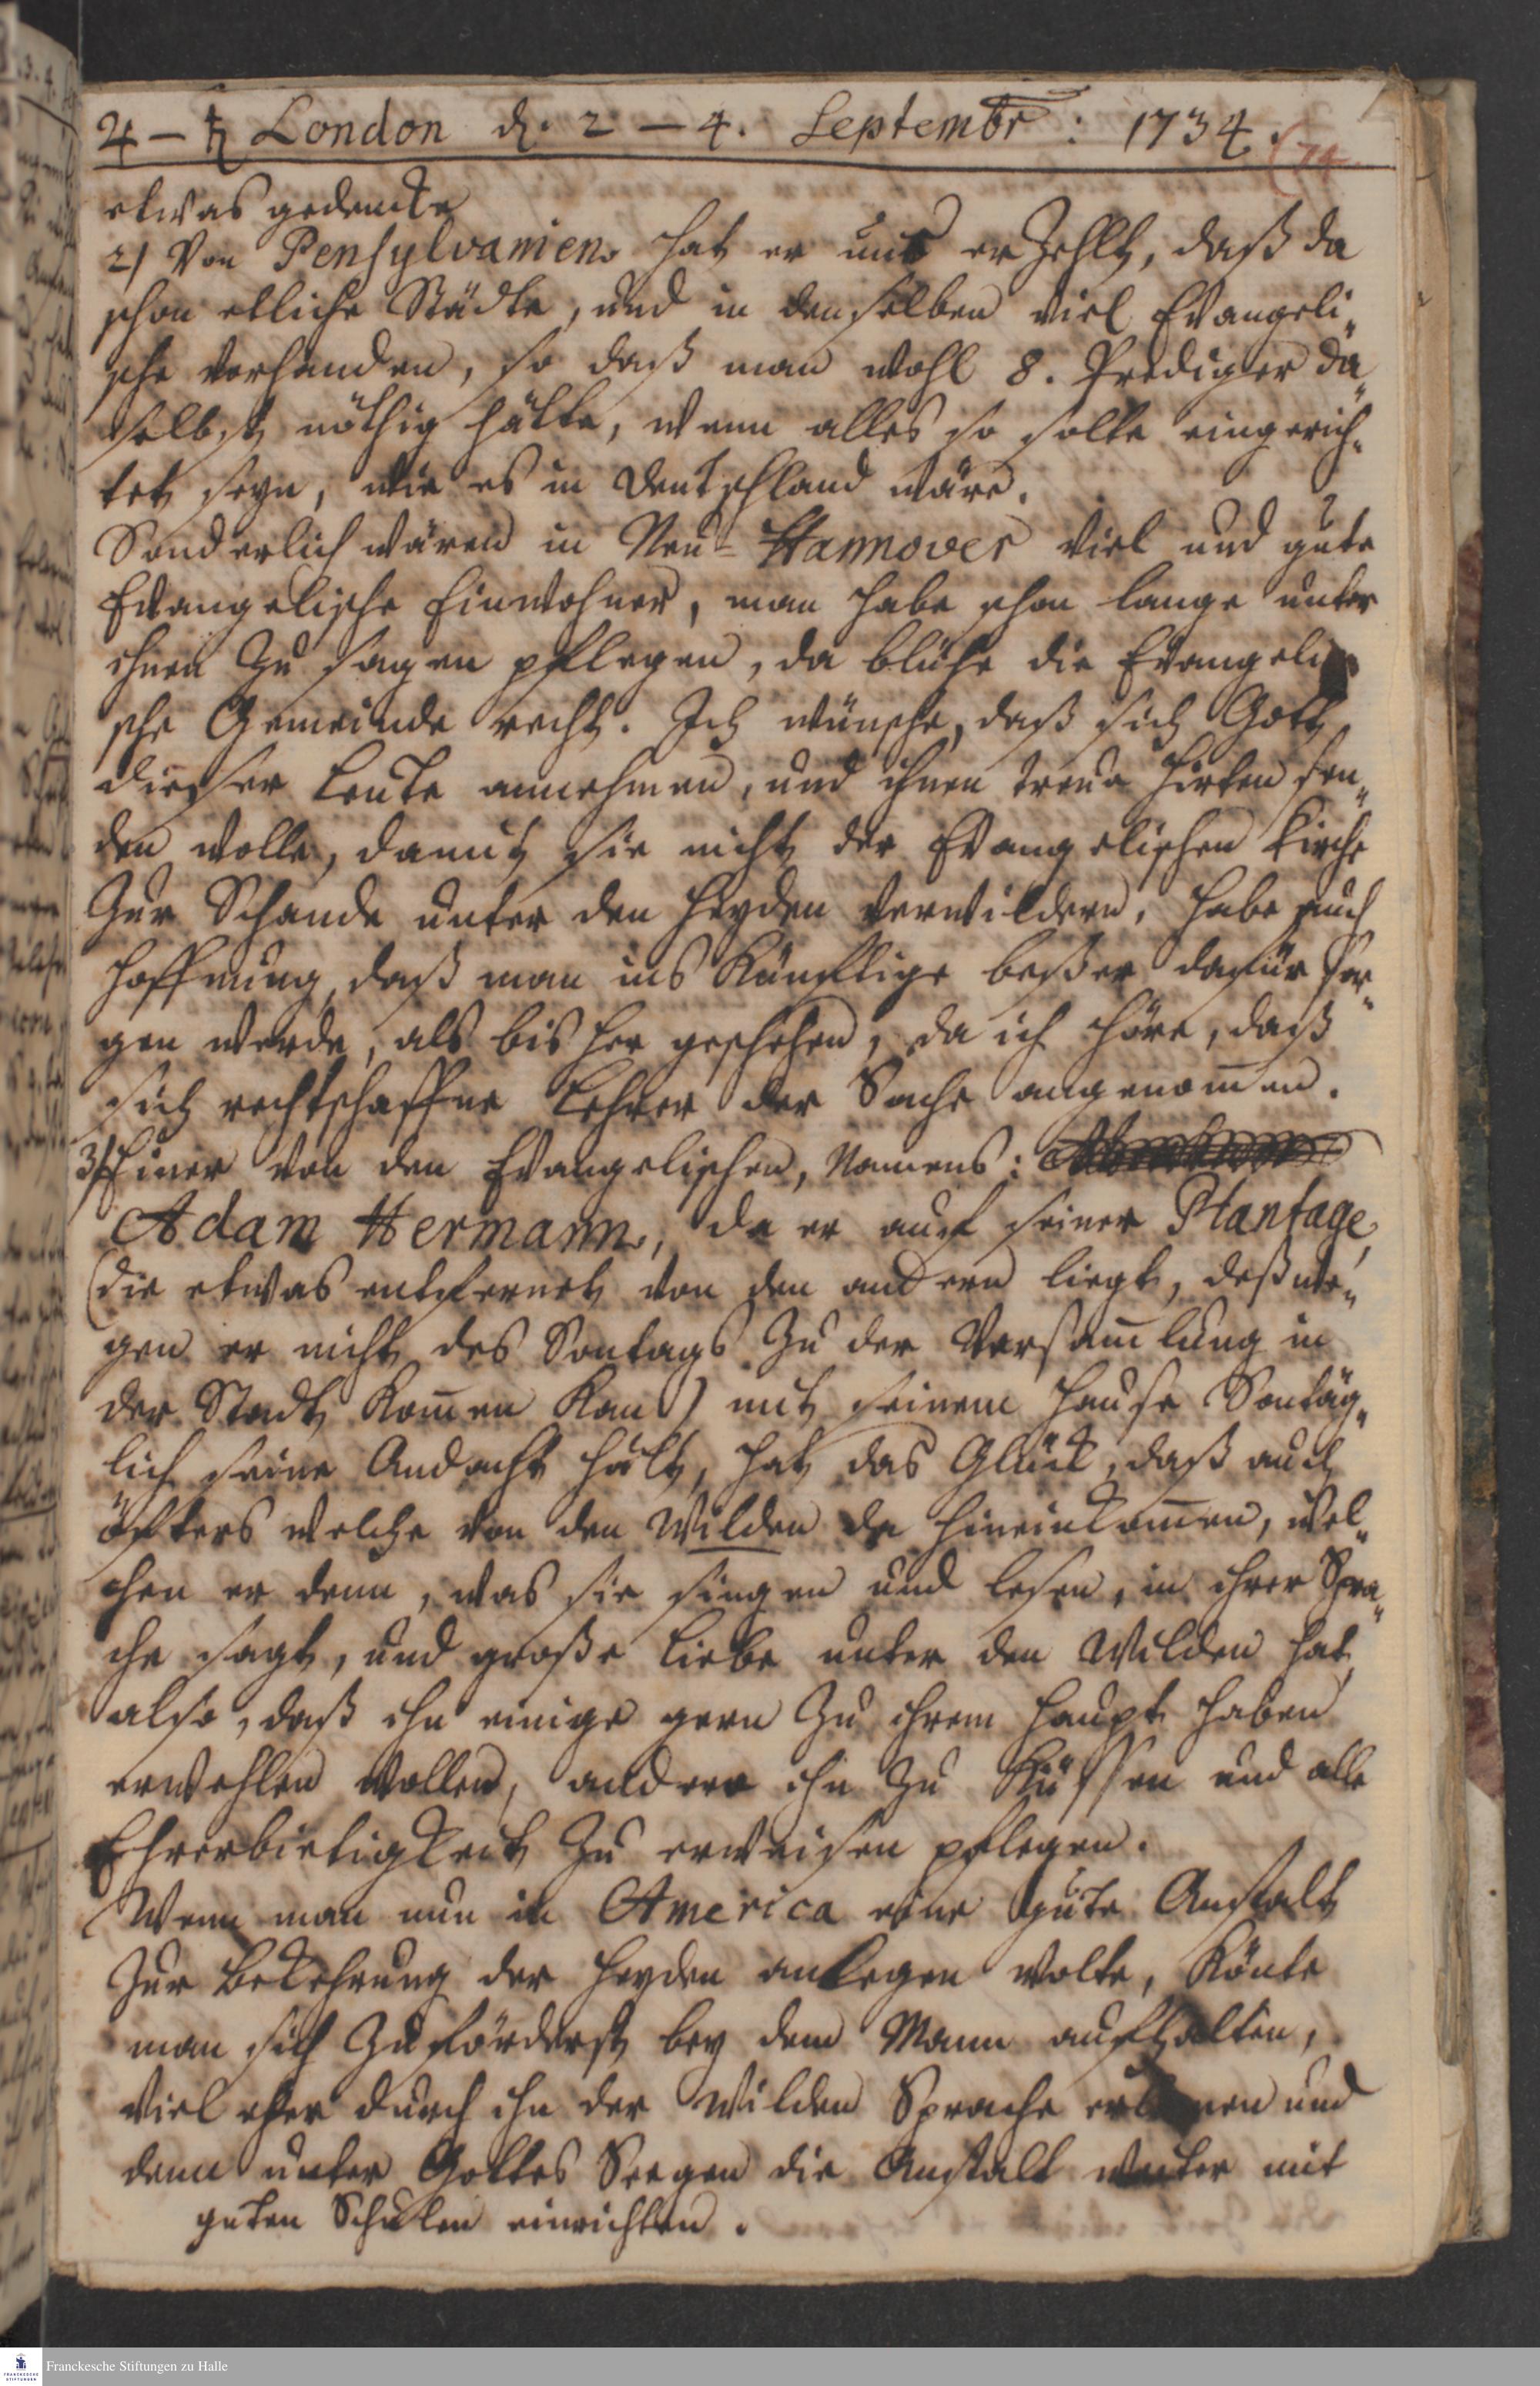 ♃ – ♄ London d. 2 – 4. Septembr: 1734.
(74
etwas gedencke
2) Von Pensylvanien hat er uns erzehlt, daß da
schon etliche Städte, und in denselben viel Evangeli„
sche vorhanden, so daß man wohl 8. Prediger da„
selbst nöthig hätte, wenn alles so solte eingerich„
tet seyn, wie es in Deutschland wäre.
Sonderlich wären in Neu-Hannover viel und gute
Evangelische Einwohner, man habe schon lange unter
ihnen zu sagen pflegen, da blühe die Evangeli
sche Gemeinde recht. Ich wünsche, daß sich Gott
dieser Leute annehmen, und ihnen treue Hirten sen„
den wolle, damit sie nicht der Evangelischen Kirche
zur Schande unter den Heyden verwildern, habe auch
Hoffnung, daß man ins Künftige beßer dafür sor„
gen werde, als bisher geschehen, da ich höre, daß
sich rechtschaffne Lehrer der Sache angenom̄en.
3) Einer von den Evangelischen, Namens:
Adam Hermann, da er auf seiner Plantage,
(die etwas entfernet von den andern liegt, deßwe„
gen er nicht des Sontags zu der Versam̄lung in
der Stadt kom̄en kan) mit seinem Hause Sontäg„
lich seine Andacht hält, hat das Glück, daß auch
öfters welche von den Wilden da hineinkom̄en, wel„
chen er denn, was sie singen und lesen, in ihrer Spra„
che sagt, und große Liebe unter den Wilden hat,
also, daß ihn einige gern zu ihrem Haupt haben
erwehlen wollen, andere ihn zu küssen und alle
Ehrerbietigkeit zu erweisen pflegen.
Wenn man nun in America eine gute Anstalt
zur Bekehrung der Heyden anlegen wolte, könte
man sich zuförderst bey dem Mann aufhalten,
viel eher durch ihn der Wilden Sprache erlernen und
denn unter Gottes Seegen die Anstalt weiter mit
guten Schulen einrichten.
Franckesche Stiftungen zu Halle